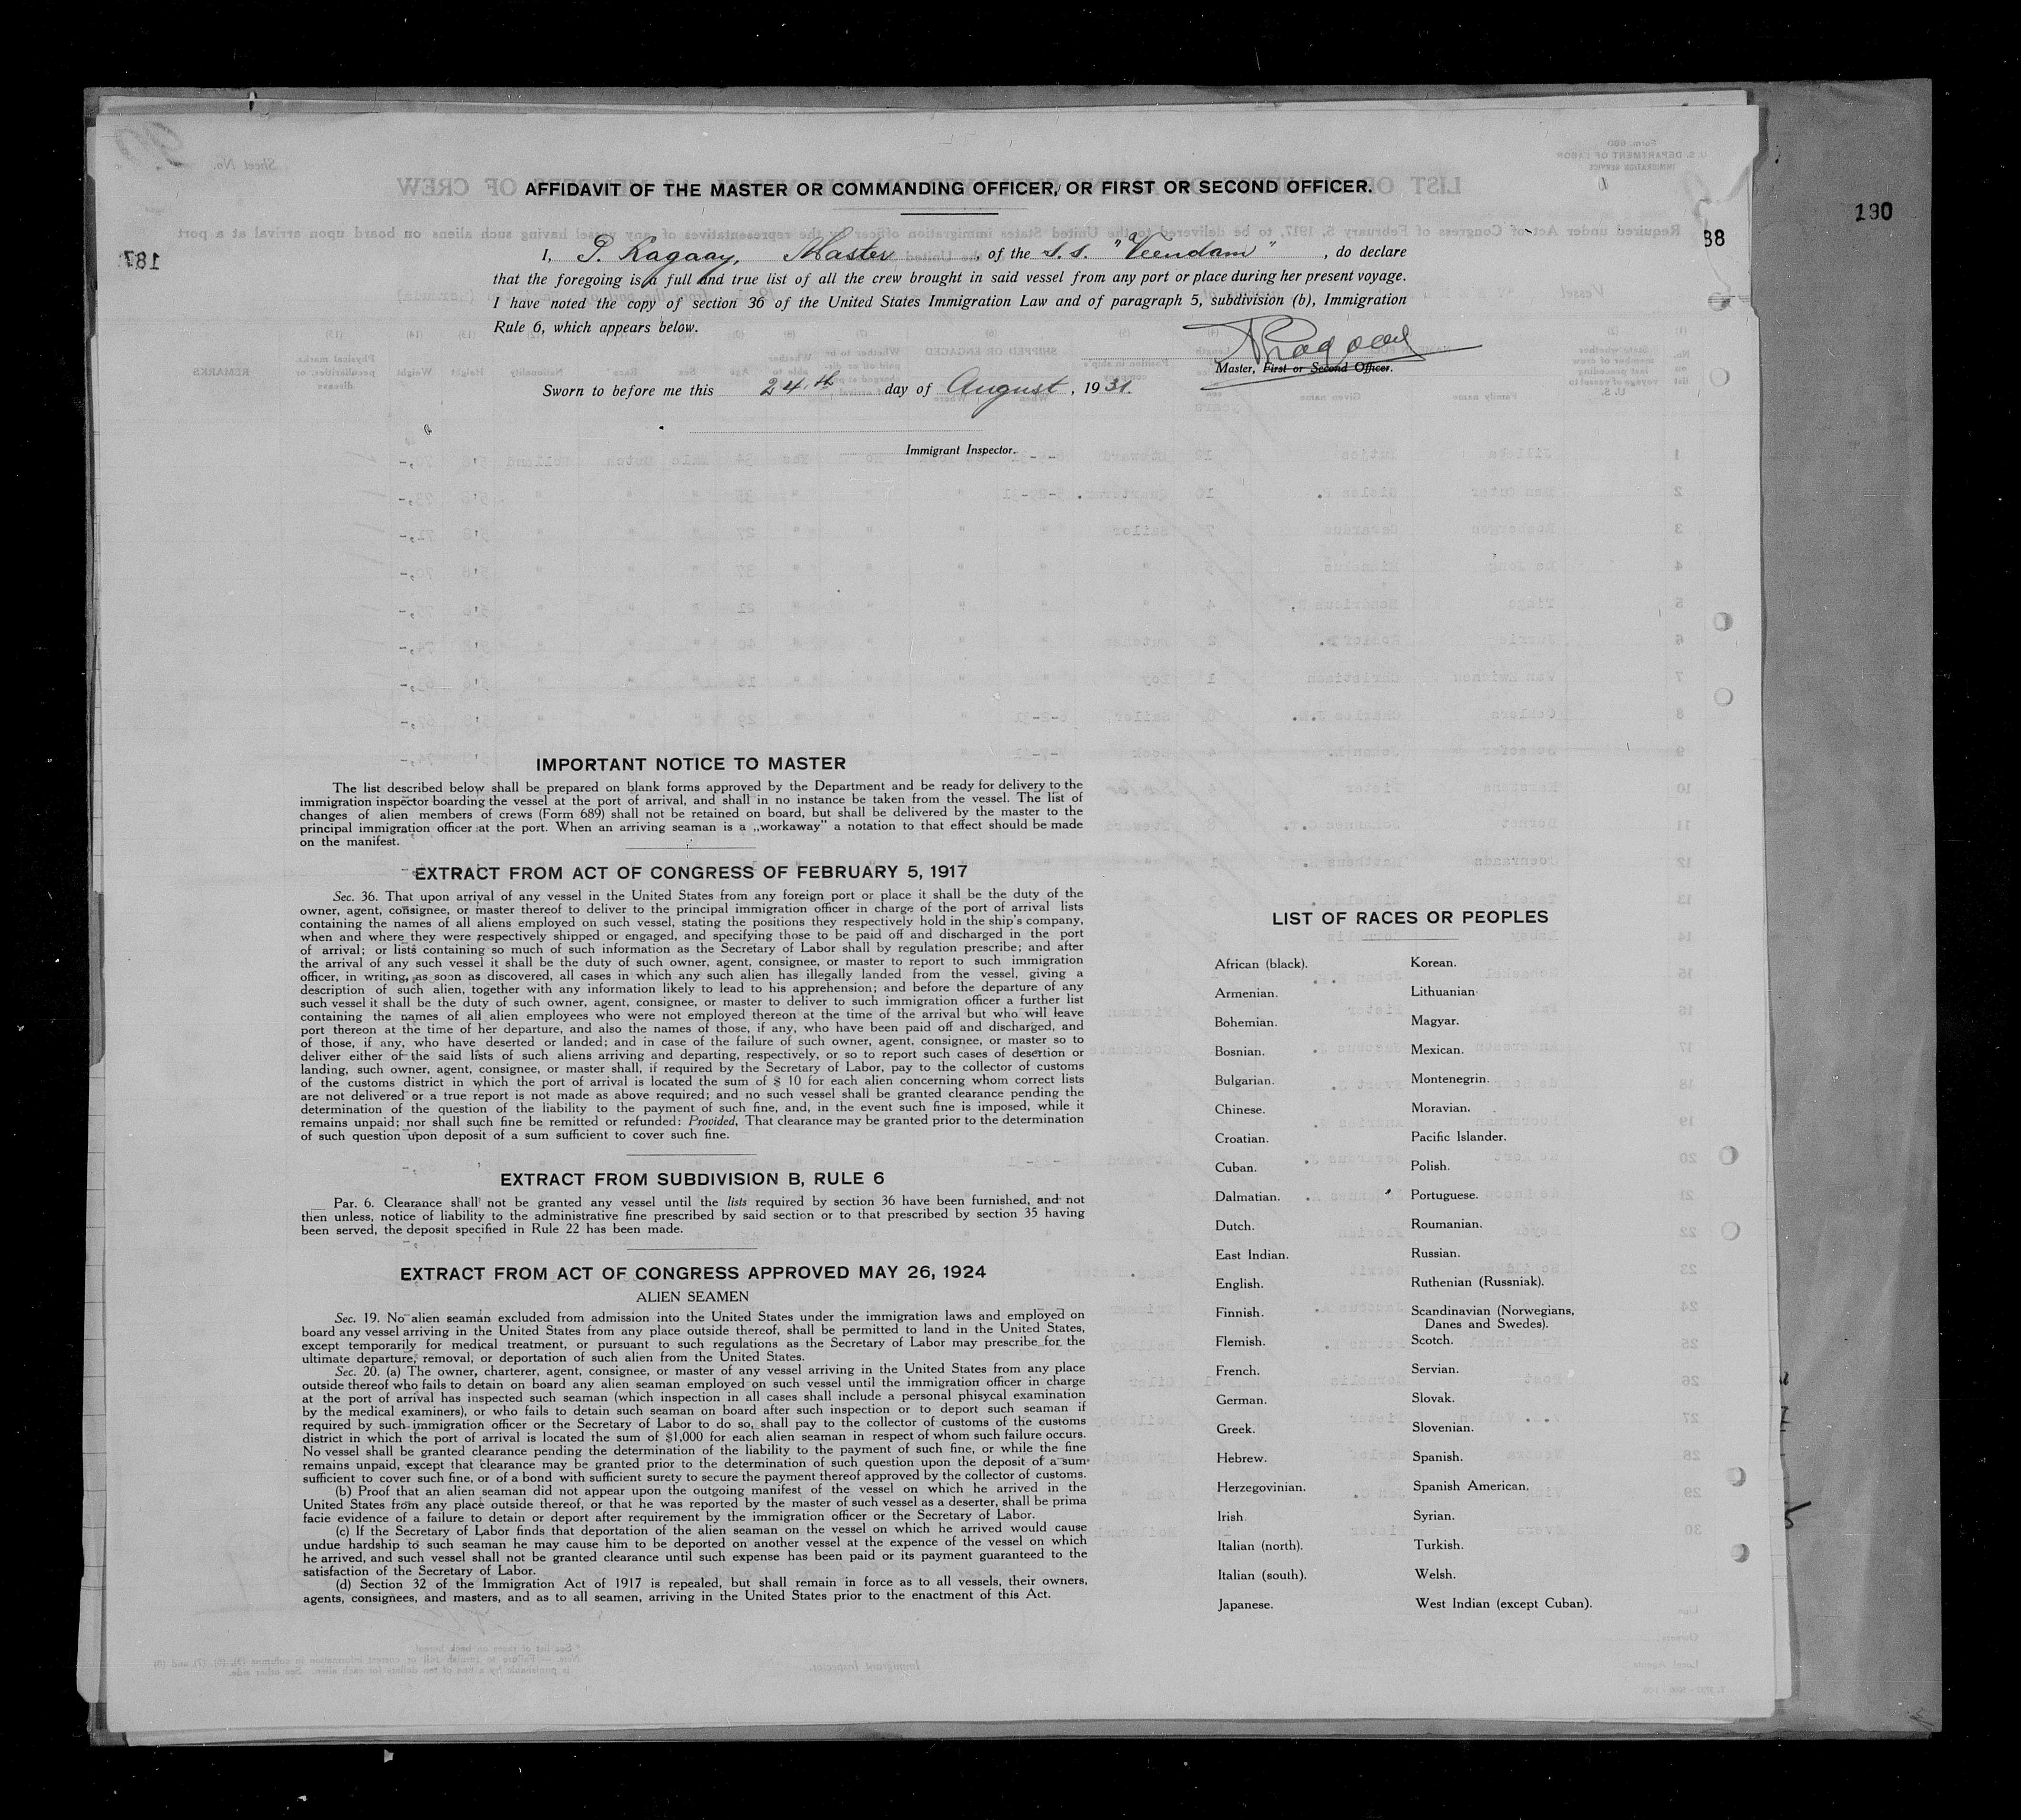 AFFIDAVIT OF THE MASTER OR COMMANDING OFFICER, OR FIRST OR SECOND OFFICER.
190
88
187
I, P. Kagaay, Master, of the S.S. "Veendam", do declare
that the foregoing is a full and true list of all the crew brought in said vessel from any port or place during her present voyage.
I have noted the copy of section 36 of the United States Immigration Law and of paragraph 5, subdivision (b), Immigration
Rule 6, which appears below.
Master, First or Second Officer.
Sworn to before me this 24th day of August, 1931.
Immigrant Inspector.
IMPORTANT NOTICE TO MASTER
The list described below shall be prepared on blank forms approved by the Department and be ready for delivery to the
immigration inspector boarding the vessel at the port of arrival, and shall in no instance be taken from the vessel. The list of
changes of alien members of crews (Form 689) shall not be retained on board, but shall be delivered by the master to the
principal immigration officer at the port. When an arriving seaman is a „workaway" a notation to that effect should be made
on the manifest.
EXTRACT FROM ACT OF CONGRESS OF FEBRUARY 5, 1917
Sec. 36. That upon arrival of any vessel in the United States from any foreign port or place it shall be the duty of the
owner, agent, consignee, or master thereof to deliver to the principal immigration officer in charge of the port of arrival lists
containing the names of all aliens employed on such vessel, stating the positions they respectively hold in the ship's company,
when and where they were respectively shipped or engaged, and specifying those to be paid off and discharged in the port
of arrival; or lists containing so much of such information as the Secretary of Labor shall by regulation prescribe; and after
the arrival of any such vessel it shall be the duty of such owner, agent, consignee, or master to report to such immigration
officer, in writing, as soon as discovered, all cases in which any such alien has illegally landed from the vessel, giving a
description of such alien, together with any information likely to lead to his apprehension; and before the departure of any
such vessel it shall be the duty of such owner, agent, consignee, or master to deliver to such immigration officer a further list
containing the names of all alien employees who were not employed thereon at the time of the arrival but who will leave
port thereon at the time of her departure, and also the names of those, if any, who have been paid off and discharged, and
of those, if any, who have deserted or landed; and in case of the failure of such owner, agent, consignee, or master so to
deliver either of the said lists of such aliens arriving and departing, respectively, or so to report such cases of desertion or
landing, such owner, agent, consignee, or master shall, if required by the Secretary of Labor, pay to the collector of customs
of the customs district in which the port of arrival is located the sum of $ 10 for each alien concerning whom correct lists
are not delivered or a true report is not made as above required; and no such vessel shall be granted clearance pending the
determination of the question of the liability to the payment of such fine, and, in the event such fine is imposed, while it
remains unpaid; nor shall such fine be remitted or refunded: Provided, That clearance may be granted prior to the determination
of such question upon deposit of a sum sufficient to cover such fine.
EXTRACT FROM SUBDIVISION B, RULE 6
Par. 6. Clearance shall not be granted any vessel until the lists required by section 36 have been furnished, and not
then unless, notice of liability to the administrative fine prescribed by said section or to that prescribed by section 35 having
been served, the deposit specified in Rule 22 has been made.
EXTRACT FROM ACT OF CONGRESS APPROVED MAY 26, 1924
ALIEN SEAMEN
Sec. 19. No alien seaman excluded from admission into the United States under the immigration laws and employed on
board any vessel arriving in the United States from any place outside thereof, shall be permitted to land in the United States,
except temporarily for medical treatment, or pursuant to such regulations as the Secretary of Labor may prescribe for the
ultimate departure, removal, or deportation of such alien from the United States.
Sec. 20. (a) The owner, charterer, agent, consignee, or master of any vessel arriving in the United States from any place
outside thereof who fails to detain on board any alien seaman employed on such vessel until the immigration officer in charge
at the port of arrival has inspected such seaman (which inspection in all cases shall include a personal phisycal examination
by the medical examiners), or who fails to detain such seaman on board after such inspection or to deport such seaman if
required by such immigration officer or the Secretary of Labor to do so, shall pay to the collector of customs of the customs
district in which the port of arrival is located the sum of $1,000 for each alien seaman in respect of whom such failure occurs.
No vessel shall be granted clearance pending the determination of the liability to the payment of such fine, or while the fine
remains unpaid, except that clearance may be granted prior to the determination of such question upon the deposit of a sum
sufficient to cover such fine, or of a bond with sufficient surety to secure the payment thereof approved by the collector of customs.
(b) Proof that an alien seaman did not appear upon the outgoing manifest of the vessel on which he arrived in the
United States from any place outside thereof, or that he was reported by the master of such vessel as a deserter, shall be prima
facie evidence of a failure to detain or deport after requirement by the immigration officer or the Secretary of Labor.
(c) If the Secretary of Labor finds that deportation of the alien seaman on the vessel on which he arrived would cause
undue hardship to such seaman he may cause him to be deported on another vessel at the expence of the vessel on which
he arrived, and such vessel shall not be granted clearance until such expense has been paid or its payment guaranteed to the
satisfaction of the Secretary of Labor.
(d) Section 32 of the Immigration Act of 1917 is repealed, but shall remain in force as to all vessels, their owners,
agents, consignees, and masters, and as to all seamen, arriving in the United States prior to the enactment of this Act.
LIST OF RACES OR PEOPLES
African (black).
Armenian.
Bohemian.
Bosnian.
Bulgarian.
Chinese.
Croatian.
Cuban.
Dalmatian.
Dutch.
East Indian.
English.
Finnish.
Flemish.
French.
German.
Greek.
Hebrew.
Herzegovinian.
Irish
Italian (north).
Italian (south).
Japanese.
Korean.
Lithuanian
Magyar.
Mexican.
Montenegrin.
Moravian.
Pacific Islander.
Polish.
Portuguese.
Roumanian.
Russian.
Ruthenian (Russniak).
Scandinavian (Norwegians,
Danes and Swedes).
Scotch.
Servian.
Slovak.
Slovenian.
Spanish.
Spanish American.
Syrian.
Turkish.
Welsh.
West Indian (except Cuban).